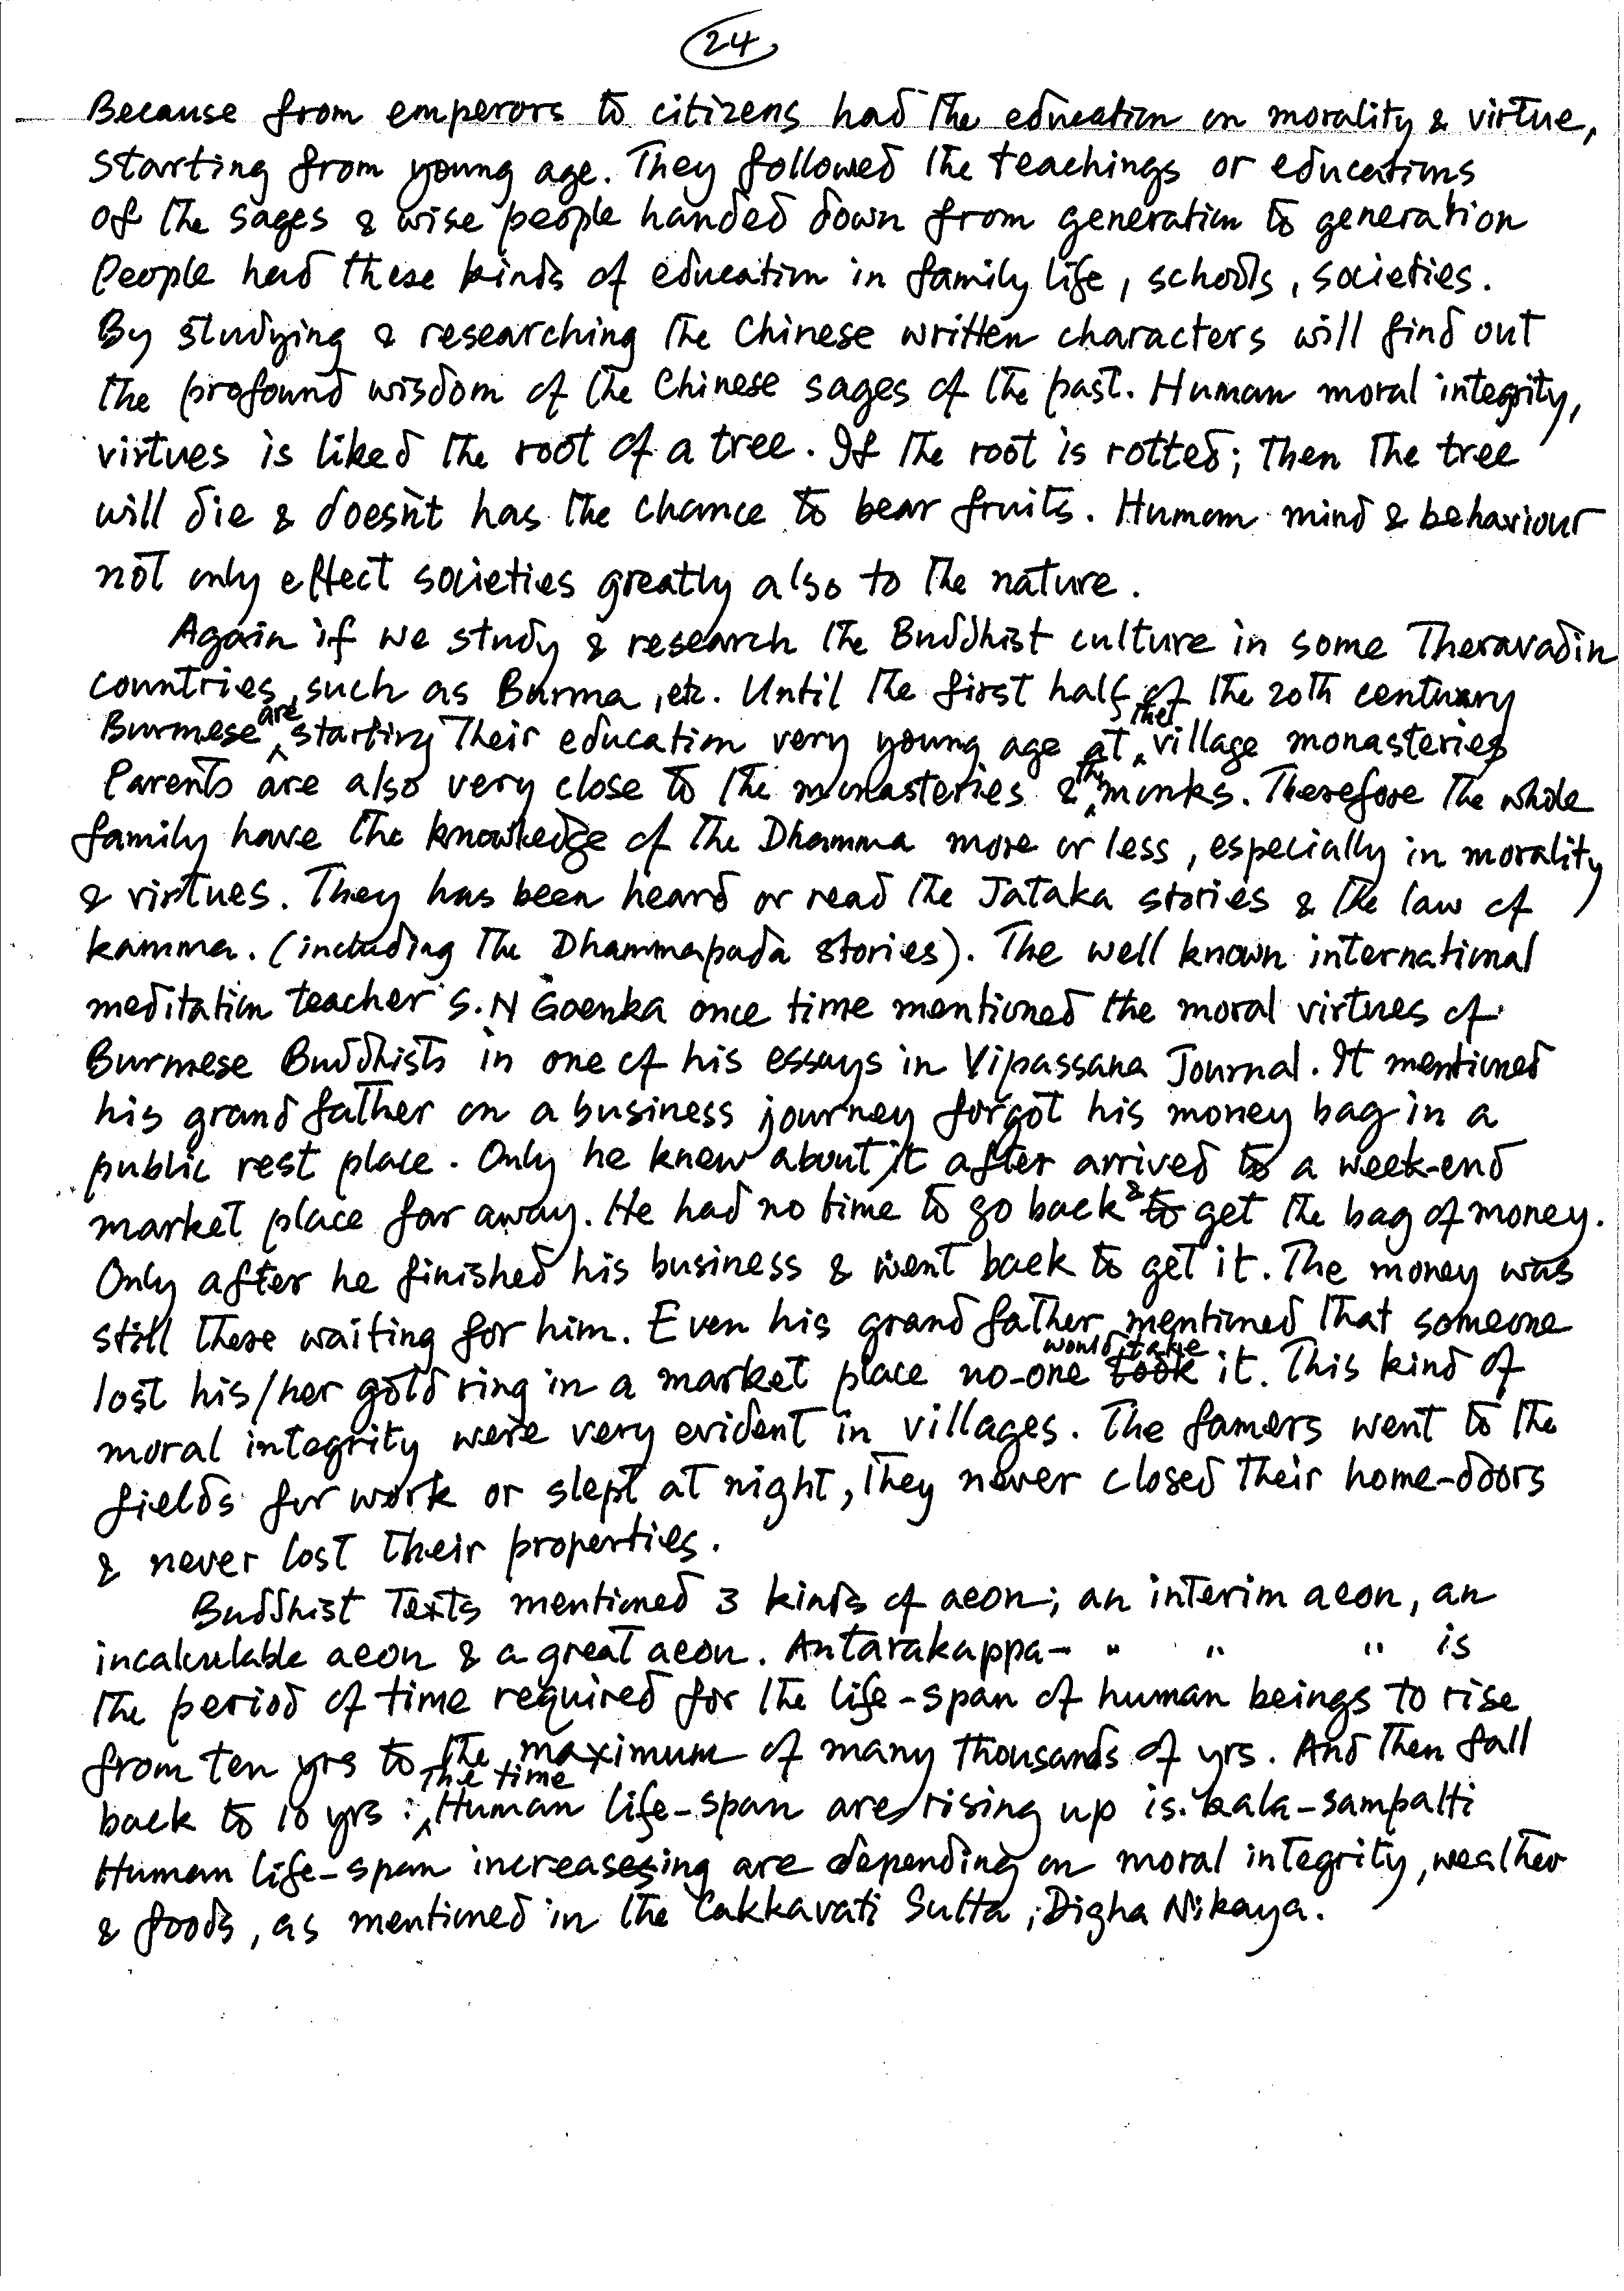 24
Because from emperors to citizens had the education on morality & virtue,
starting from young age. They followed the teachings or educations
of the sages & wise people handed down from generation to generation
People had these kinds of education in family life, schools, societies.
By studying & researching the Chinese written characters will find out
the profound wisdom of the Chinese sages of the past. Human moral integrity,
virtues is liked the root of a tree. If the root is rotted; then the tree
will die & doesn't has the chance to bear fruits. Human mind & behaviour
not only effect societies greatly also to the nature.
Again if we study & research the Buddhist culture in some Theravadin
countries, such as Burma, etc. Until the first half of the 20th century
Burmese are starting their education very young age at the village monasteries
Parents are also very close to the monasteries & the monks. Therefore the whole
family have the knowledge of the Dhamma more or less, especially in morality
& virtues. They has been heard or read the Jataka stories & the law of
kamma. (including the Dhammapada stories). The well known international
meditation teacher S.N Goenka once time mentioned the moral virtues of
Burmese Buddhists in one of his essays in Vipassana Journal. It mentioned
his grand father on a business journey forgot his money bag in a
public rest place. Only he knew about it after arrived to a week-end
market place far away. He had no time to go back & to get the bag of money.
Only after he finished his business & went back to get it. The money was
still there waiting for him. Even his grand father mentioned that someone
lost his/her gold ring in a market place no-one would take took it. This kind of
moral integrity were very evident in villages. The famers went to the
fields for work or slept at night, they never closed their home-doors
& never lost their properties.
Buddhist Texts mentioned 3 kinds of aeon; an interim aeon, an
incalculable aeon & a great aeon. Antarakappa- " " " is
the period of time required for the life-span of human beings to rise
from ten yrs to the maximum of many thousands of yrs. And then fall
back to 10 yrs : The time Human life-span are rising up is kala-sampatti
Human life-span increasesing are depending on moral integrity, weather
& foods, as mentioned in the Cakkavati Sutta, Digha Nikaya.